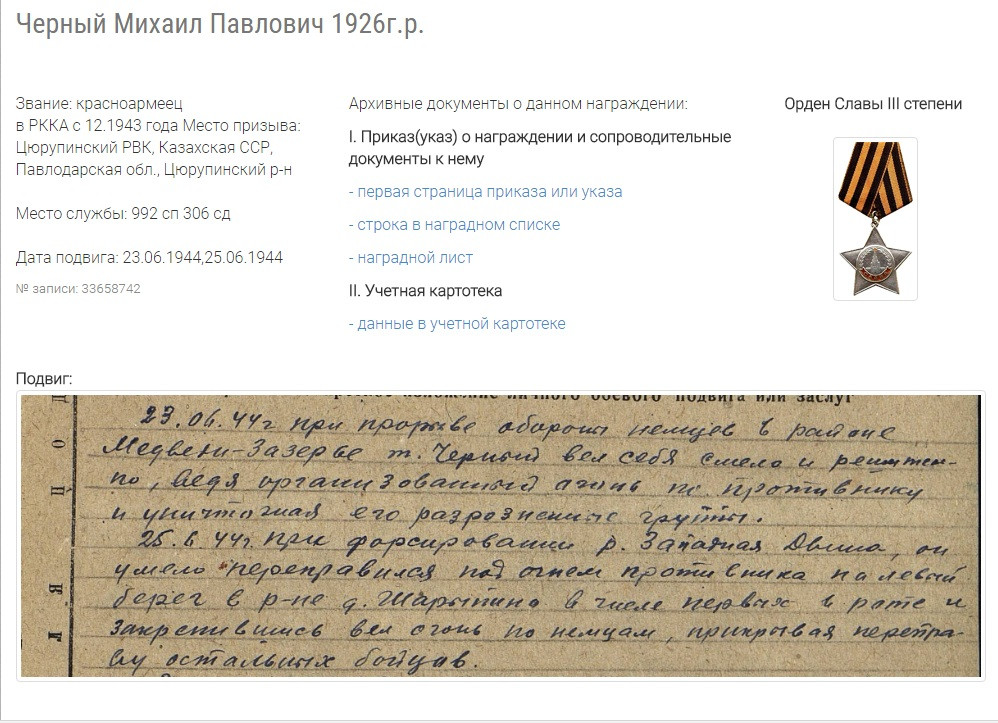 Черный Михаил Павлович 1926г.р.
Звание: красноармеец
в РККА с 12.1943 года Место призыва:
Цюрупинский РВК, Казахская ССР,
Павлодарская обл., Цюрупинский р-н
Место службы: 992 сп 306 сд
Дата подвига: 23.06.1944,25.06.1944
№ записи: 33658742
Архивные документы о данном награждении:
I. Приказ(указ) о награждении и сопроводительные
документы к нему
- первая страница приказа или указа
- строка в наградном списке
- наградной лист
II. Учетная картотека
- данные в учетной картотеке
Орден Славы III степени
Подвиг:
личного боевого подвига или заслуг
23.06.44г при прорыве обороны немцев в районе
Медвели-Зазерье т. Черный вел себя смело и решитель-
но, ведя организованный огонь по противнику
и уничтожая его разрозненные группы.
25.6.44г. при форсировании р. Западная Двина, он
умело переправился под огнем противника на левый
берег в р-не д. Шарыпино в числе первых в роте и
закрепившись вел огонь по немцам, прикрывая перепра-
ву остальных бойцов.